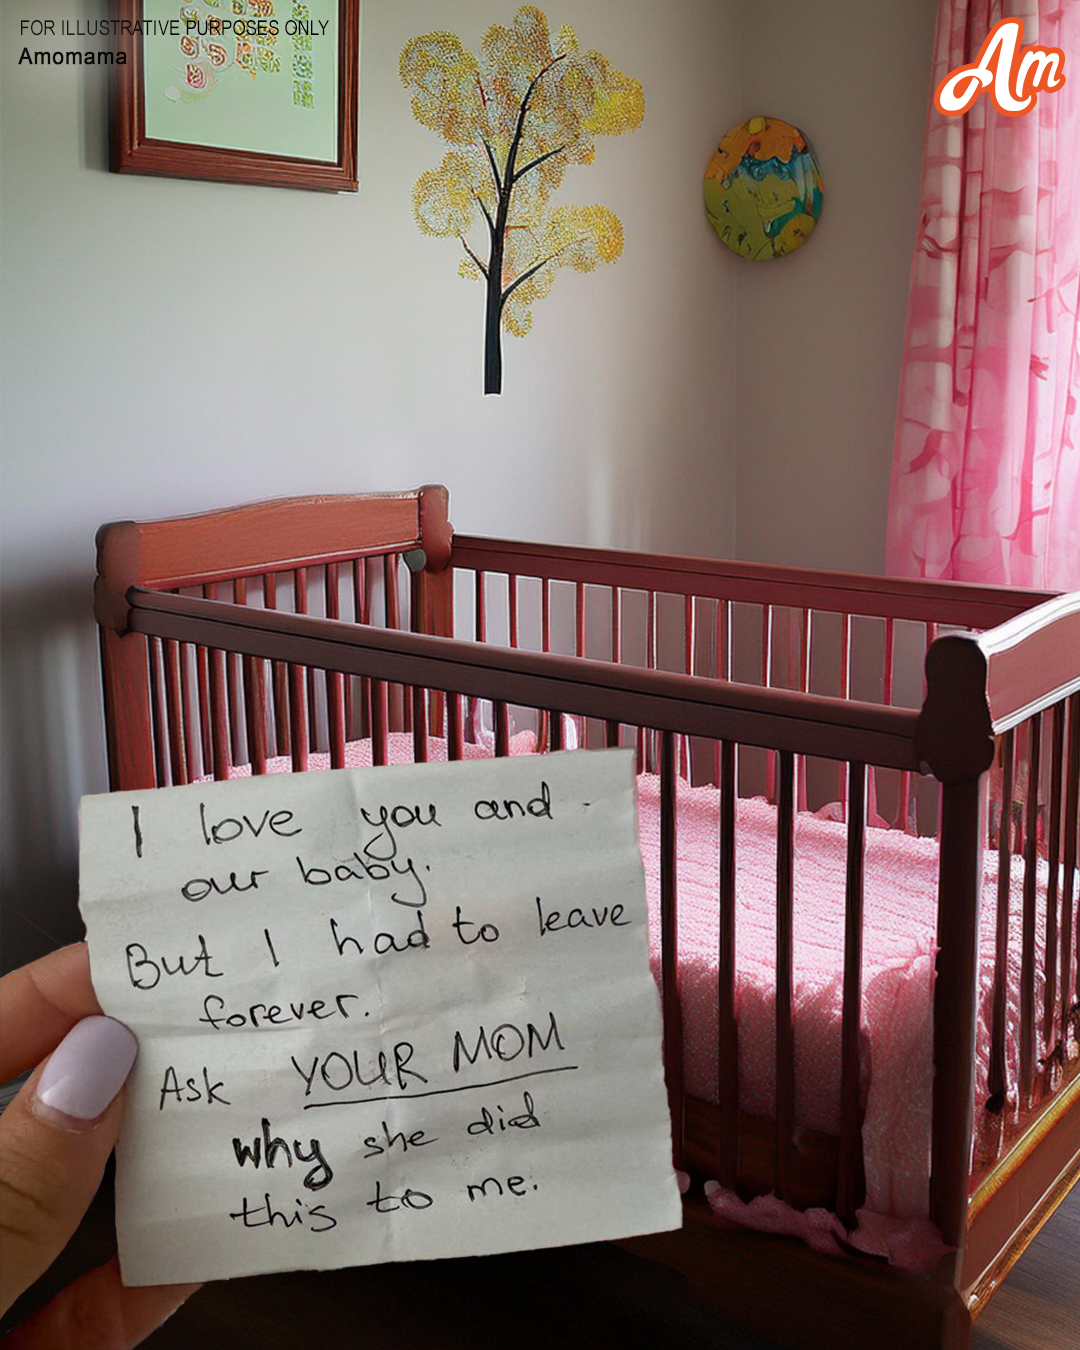 FOR ILLUSTRATIVE PURPOSES ONLY
Amomama
Am
I love you and
our baby.
But I had to leave
forever.
Ask YOUR MOM
why she did
this to me.